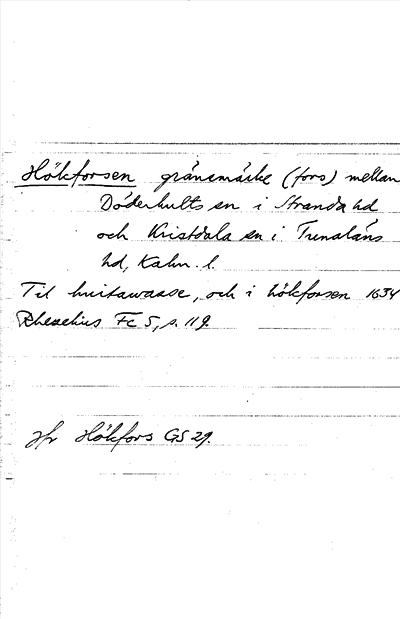 Hökforsen gränsmärke (fors) mellan
Döderhults sn i Stranda hd
och Kristdala sn i Tunaläns
hd, Kalm. l.
Til huitawaase, och i hökforsen 1634
Rhezelius Fc 5, s. 119.
Jfr Hökfors GS 29.